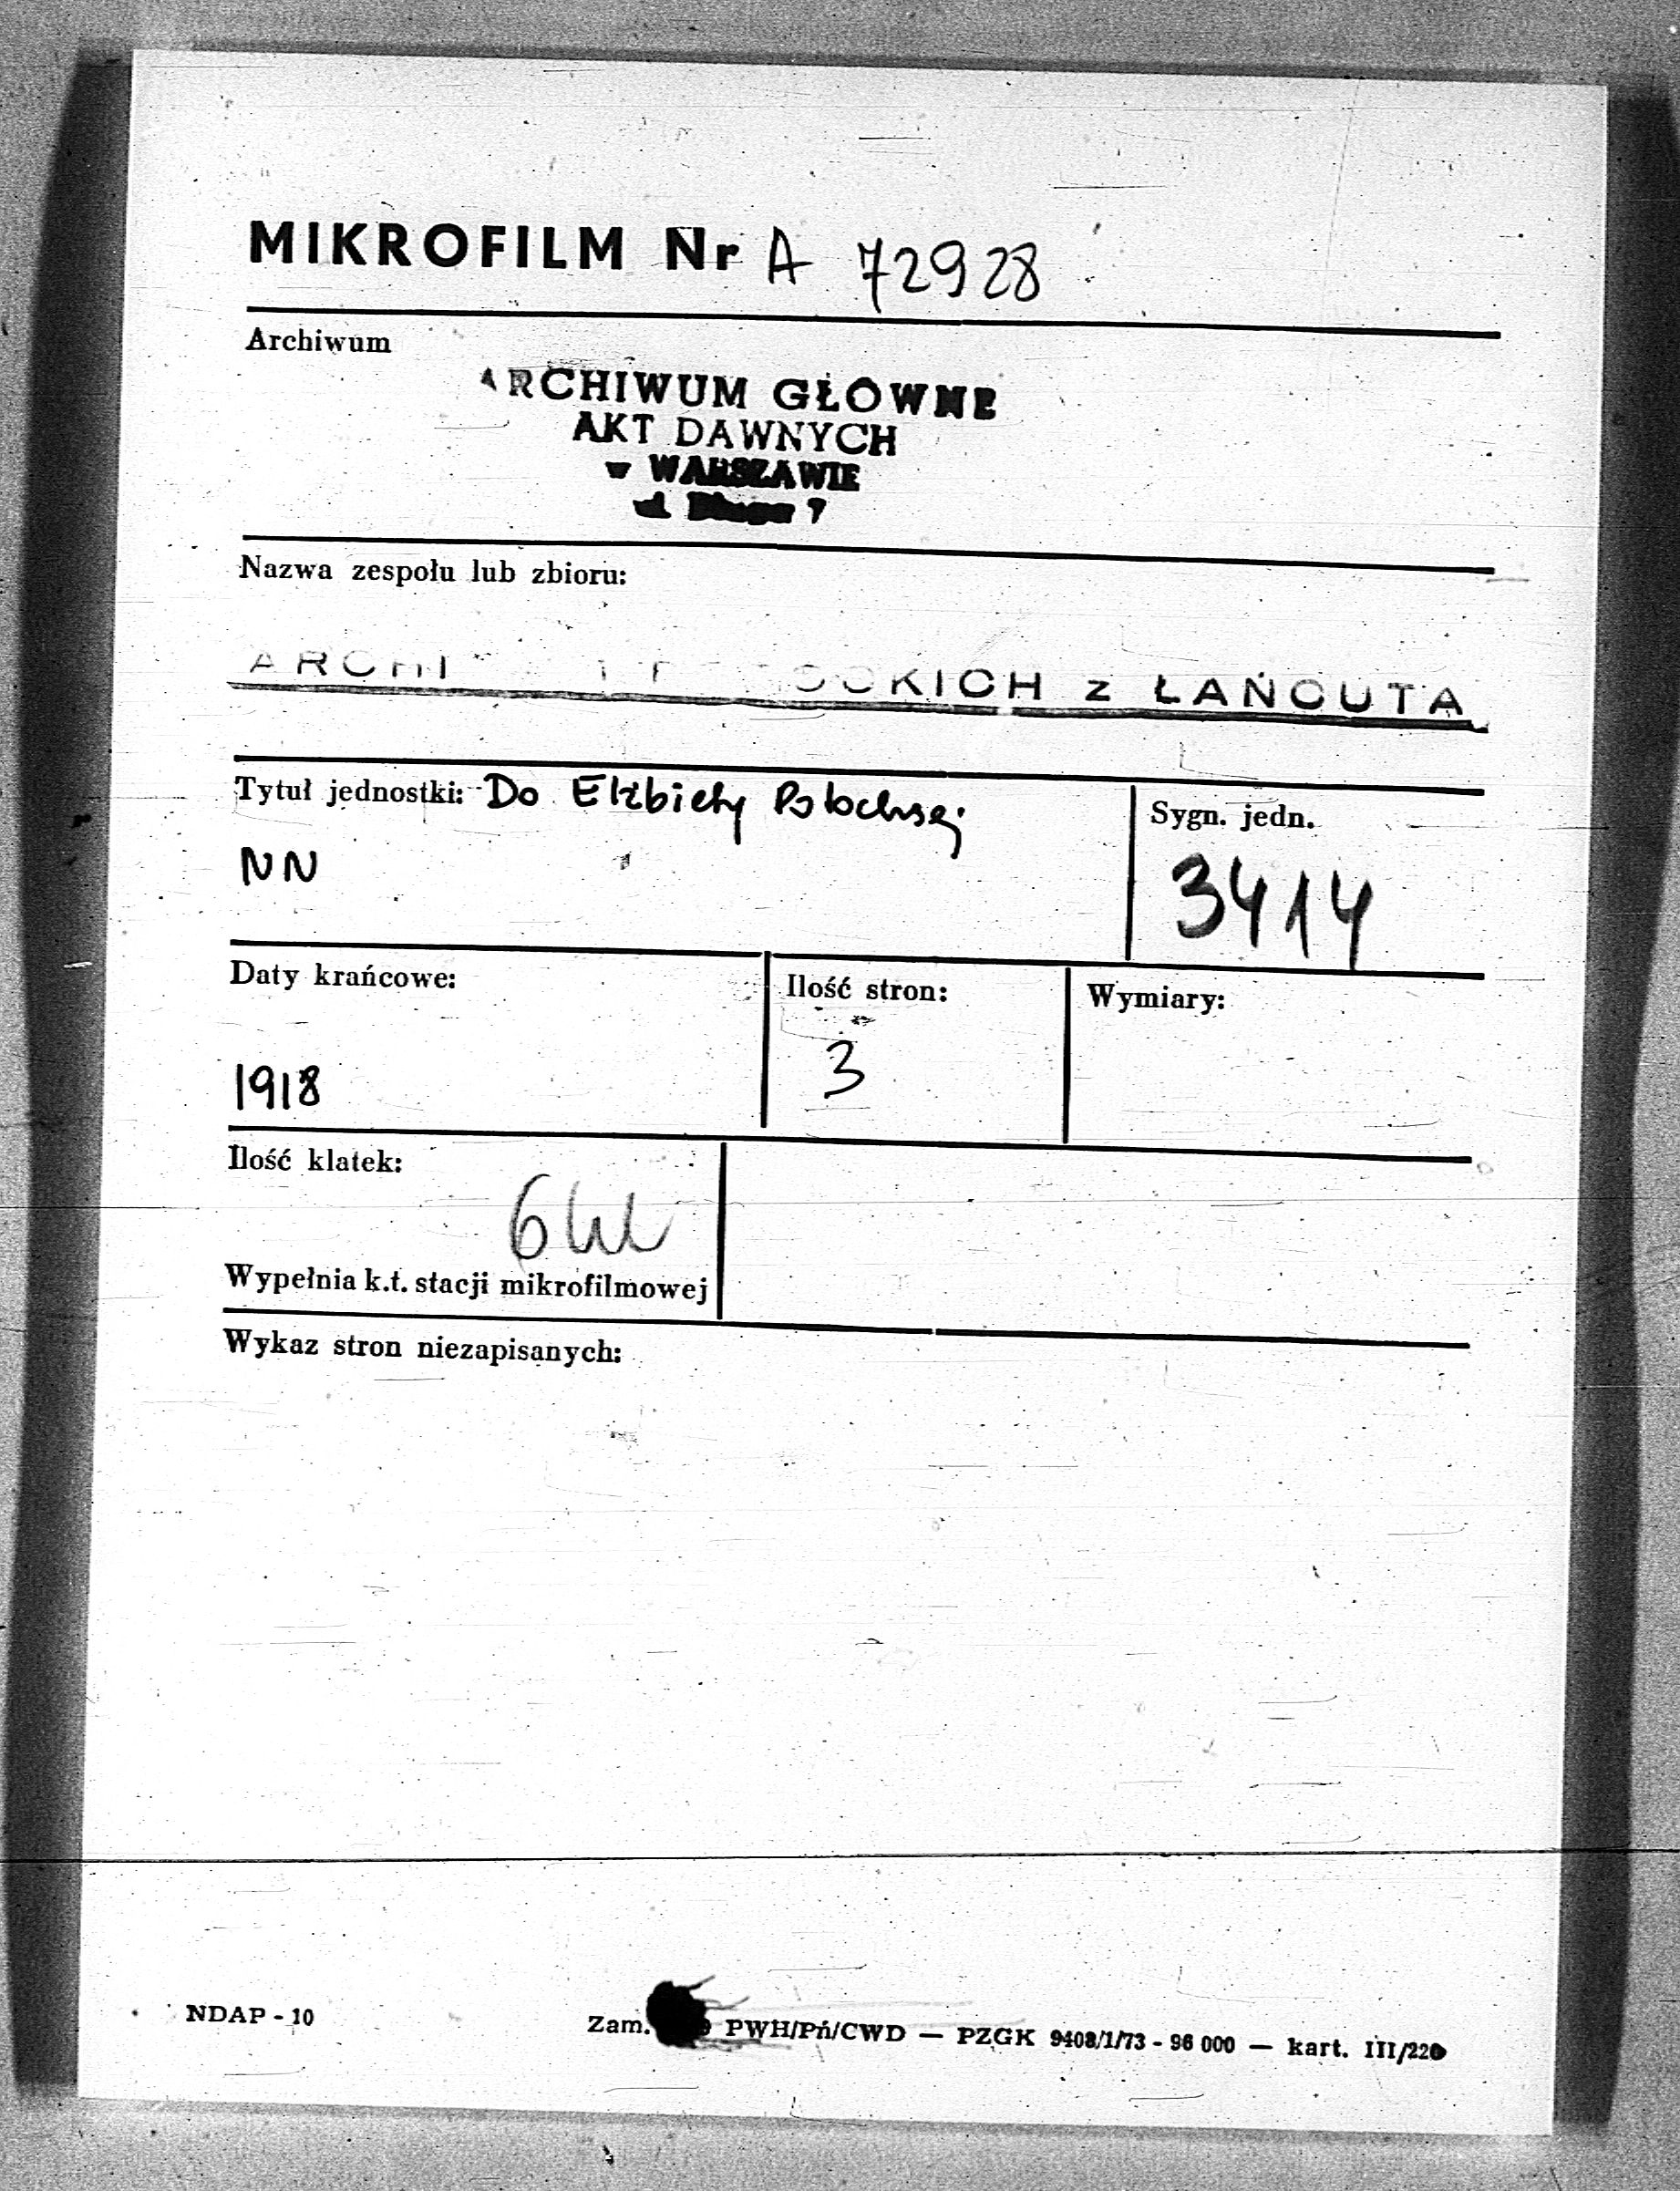 MIKROFILM Nr A 72928
Archiwum
ARCHIWUM GŁÓWNE
AKT DAWNYCH
w WARSZAWIE
ul. Długa 7
Nazwa zespołu lub zbioru:
KICH z ŁAŃCUTA
Tytuł jednostki: Do Elżbiety Potockiej
NN
Sygn. jedn.
3414
Daty krańcowe:
1918
Ilość stron:
3
Wymiary:
Ilość klatek:
6 kl
Wypełnia k.t. stacji mikrofilmowej
Wykaz stron niezapisanych:
NDAP - 10
Zam. PWH/Pń/CWD — PZGK 9408/1/73 - 96 000 — kart. III/220